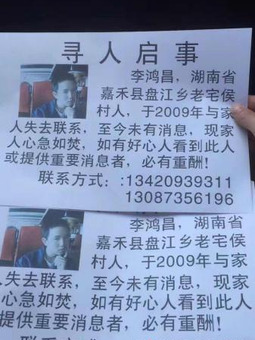 寻人启事
李鸿昌，湖南省
嘉禾县盘江乡老宅侯
村人，于2009年与家
人失去联系，至今未有消息，现家
人心急如焚，如有好心人看到此人
或提供重要消息者，必有重酬！
联系方式：:13420939311
13087356196
李鸿昌，湖南省
嘉禾县盘江乡老宅侯
村人，于2009年与家
人失去联系，至今未有消息，现
人心急如焚，如有好心人看到
或提供重要消息者，必有重酬！